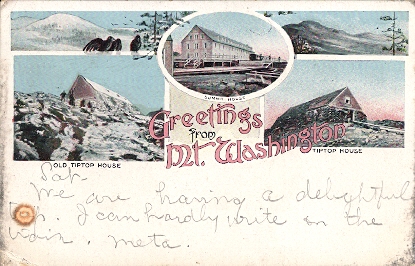 SUMMIT HOUSE
Greetings
from
Mt. Washington
OLD TIPTOP HOUSE
TIPTOP HOUSE
Sat.
We are having a delightful
I can hardly write on the
train. Meta.